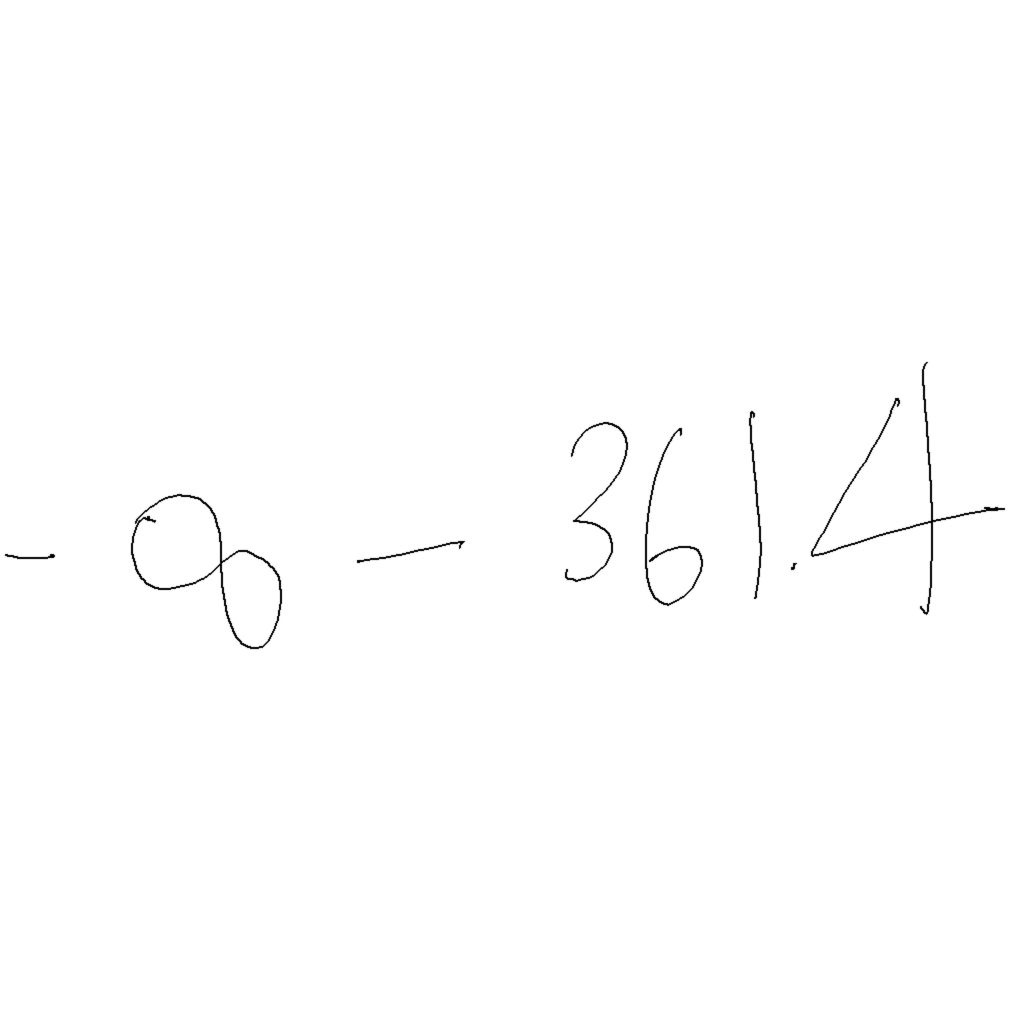 - 8 - 361.4